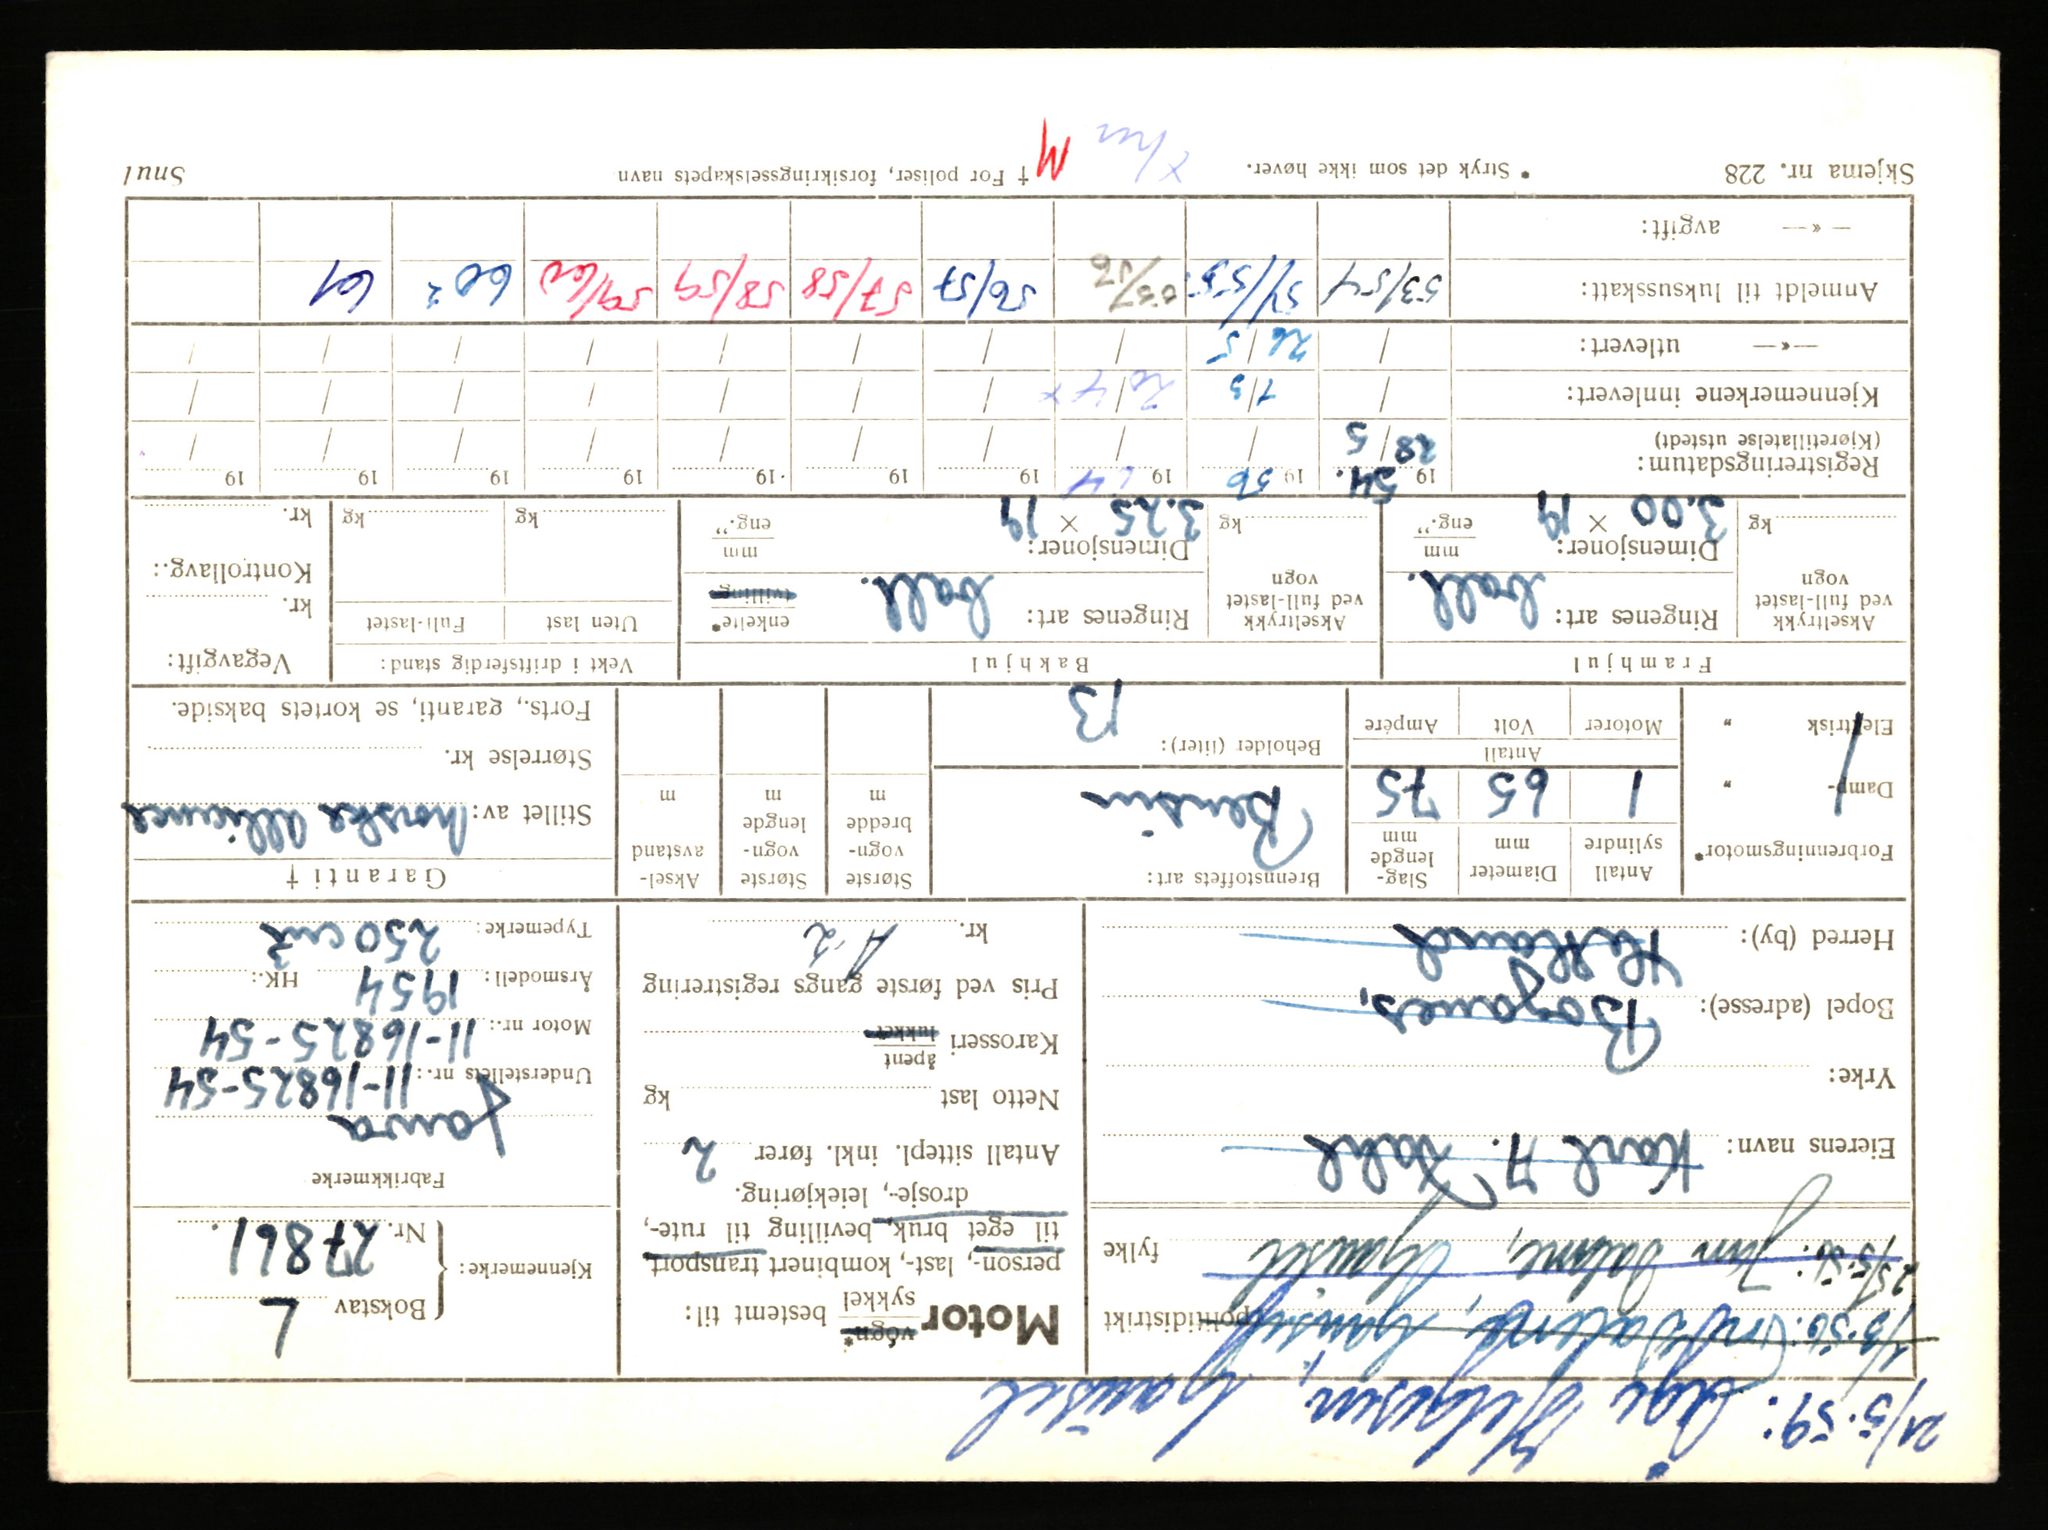 21/5.59: Åge Helgesen, Gausel
politidistrikt
25/5.56: Jan Dahne, Gausel
fylke
Eierens navn: Karl A. Dahl
Yrke:
Bopel (adresse): Boganes,
Herred (by): Hetland
Motor vogn* sykkel bestemt til:
person-, last-, kombinert transport
til eget bruk, bevilling til rute-,
drosje-, leiekjøring.
Antall sittepl. inkl. fører 2
Netto last kg
Karosseri åpent lukket
Pris ved første gangs registrering
kr. A-2
Kjennemerke: { Bokstav L
Nr. 27861.
Fabrikkmerke
Jawa
Understellets nr.: 11-16825-54
Motor nr.: 11-16825-54
Årsmodell: 1954 HK.:
Typemerke: 250 cm3
Forbrenningsmotor*
Damp- "
Elektrisk "
Antall sylindre 1
Diameter mm 65
Slag-lengde mm 75
Antall
Motorer Volt Ampére
Brennstoffets art: Bensin
Beholder (liter): 13
Største vogn-bredde m
Største vogn-lengde m
Aksel-avstand m
Garanti †
Stillet av: Norske Alliance
Størrelse kr.
Forts., garanti, se kortets bakside.
Framhjul
Akseltrykk ved full-lastet vogn kg
Ringenes art: ball.
Dimensjoner: mm eng."
3.00 × 19
Bakhjul
Akseltrykk ved full-lastet vogn kg
Ringenes art: ball. enkelte* tvilling
Dimensjoner: mm eng."
3.25 × 19
Vekt i driftsferdig stand:
Uten last Full-lastet
kg kg
Vegavgift:
kr.
Kontrollavg.:
kr.
Registreringsdatum: 19 54. 19 56 19 64 19 19 19 19 19 19 19
(Kjøretillatelse utstedt) 28/5 / / / / / / /
Kjennemerkene innlevert: / 1/3 20/4 / / / / / / /
—»— utlevert: / 26/5 / / / / / / / /
Anmeldt til luksusskatt: 53/54 54/55. 55/56 56/57 57/58 58/59 59/60 60² 61
—»— avgift:
Skjema nr. 228 * Stryk det som ikke høver. † For poliser, forsikringsselskapets navn Snul
M